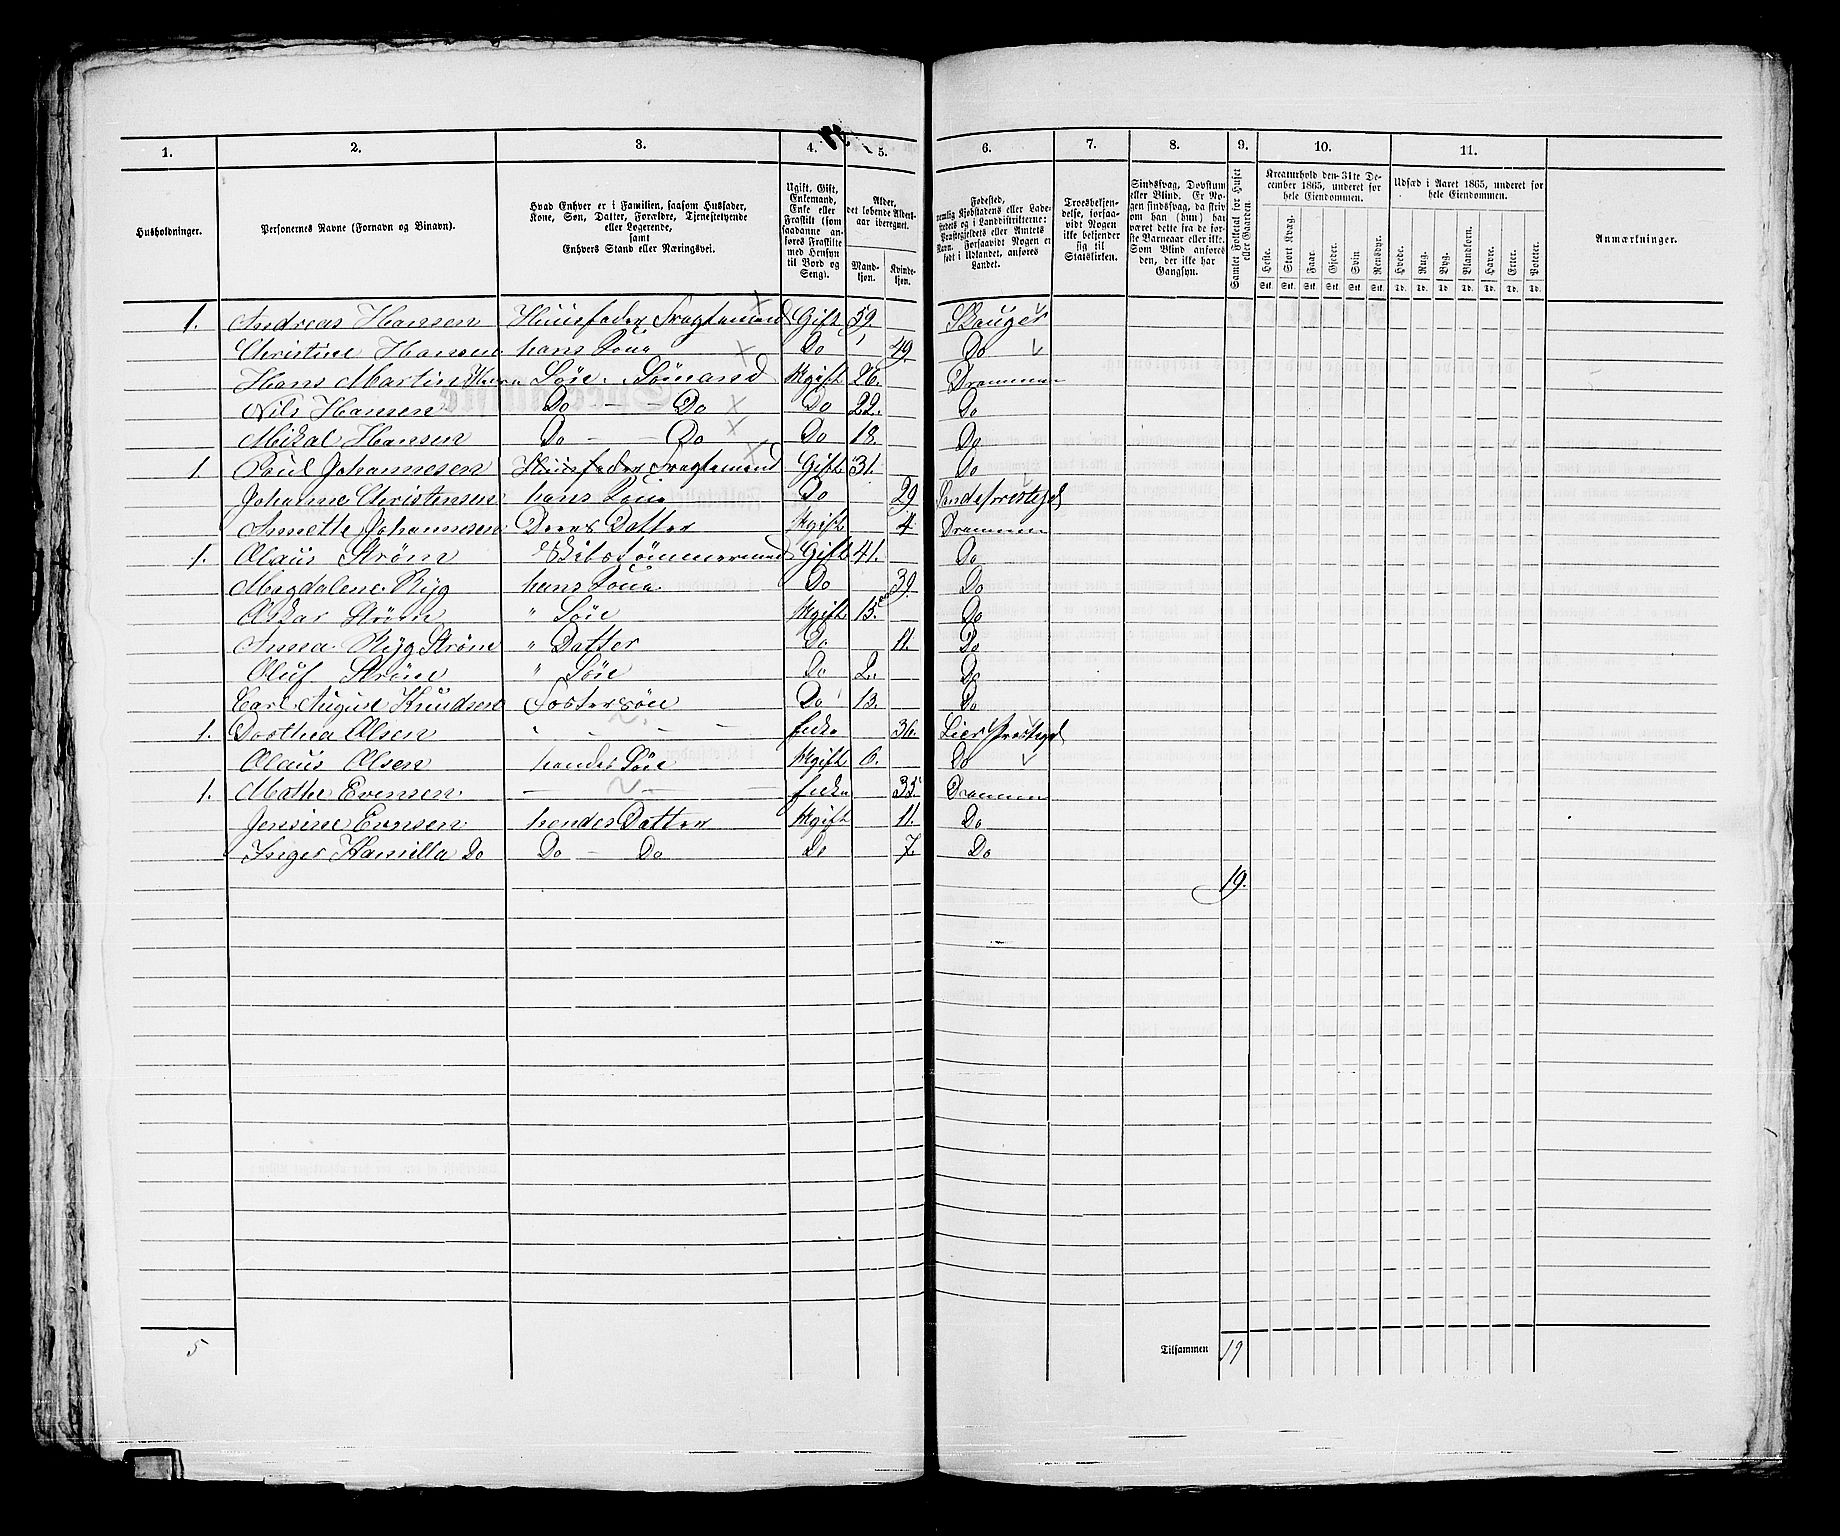 1. 2. 3. 4. 5. 6. 7. 8. 9. 10. 11.
Husholdninger.
Personernes Navne (Fornavn og Binavn).
Hvad Enhver er i Familien, saasom Husfader,
Kone, Søn, Datter, Forældre, Tjenestetyende
eller Logerende,
samt
Enhvers Stand eller Næringsvei.
Ugift, Gift,
Enkemand,
Enke eller
Fraskilt (som
saadanne an-
føres Fraskilte
med Hensyn
til Bord og
Seng).
Alder,
det løbende Alders-
aar iberegnet.
Mand-
kjøn.
Kvinde-
kjøn.
Fødested,
nemlig Kjøbstadens eller Lade-
stedets og i Landdistrikterne:
Præstegjeldets eller Amtets
Navn. Forsaavidt Nogen er
født i Udlandet, anføres
Landet.
Troesbekjen-
delse, forsaa-
vidt Nogen
ikke bekjender
sig til
Statskirken.
Sindssvag, Døvstum
eller Blind. Er No-
gen sindssvag, da skriv
om han (hun) har
været dette fra de før-
ste Barneaar eller ikke.
Som Blind anføres
den, der ikke har
Gangsyn.
Samlet Folketal for Huset
eller Gaarden.
Kreaturhold den 31te De-
cember 1865, underet for
hele Eiendommen.
Heste. Stort Kvæg. Faar. Gjeder. Svin. Rensdyr.
Stk. Stk. Stk. Stk. Stk. Stk.
Udsæd i Aaret 1865, underet for
hele Eiendommen.
Hvede. Rug. Byg. Blandkorn. Havre. Erter. Poteter.
Td. Td. Td. Td. Td. Td. Td.
Anmærkninger.
1. Andreas Hansen Huusfader Fragtemand Gift 59. Skauger
Christine Hansen hans Kone Do 49. Do
Hans Martin Søn Sømand Ugift 26. Drammen
Nils Hansen Do Do Do 22. Do
Mikal Hansen Do Do Do 18. Do
1. Poul Johannesen Huusfader Fragtemand Gift 31. Do
Johanne Christensen hans Kone Do 29
Annette Johannesen Deres Datter Ugift 4 Drammen
1. Olaus Strøm Skibstømmermand Gift 41. Do
Magdalene Ryg hans Kone Do 39. Do
Oskar Strøm " Søn Ugift 15. Do
Anna Ryg Strøm " Datter Do 11. Do
Oluf Strøm " Søn Do 2. Do
Carl August Knudsen Fostersøn Do 13. Do
1. Dorthea Olsen " Enke 36. Lier Prestegjel
Olaus Olsen hendes Søn Ugift 6. Do
1. Mathe Evensen Enke 35 Drammen
Jensine Evensen hendes Datter Ugift 11. Do
Inger Hamilla Do Do Do Do 7. Do
19.
5 Tilsammen 19